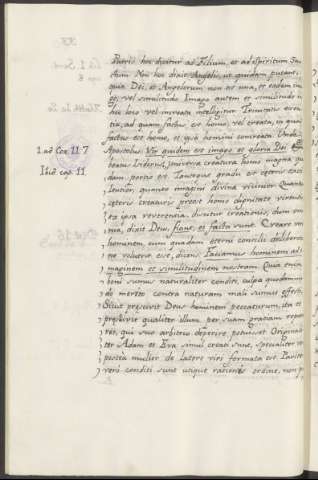 Patris hoc dicitur ad Filium, et ad Spiritum San
ctum. Non hoc dixit Angelis, ut quidam putant,
quia Dei, et Angelorum non est una, et eadem ima
go, vel similitudo. Imago autem et similitudo in
hoc loco vel increata intelligitur Trinitatis essen
tia, ad quam factus est homo, vel creata, in qua
factus est homo, et quæ homini concreata. Unde
Apostolus. Vir quidem est imago et gloria Dei
1. ad Cor. 11. 7
Isid. cap. 11.
beatus Isidorus, universa creatura homo magna quæ
dam portio est tantoque gradu est ceteris excel
lentior, quanto imagini divinæ vicinior. Quanto
ceteris creaturis præest homo dignitate virtutis
ex ipsa reverentia, dicitur creationis, dum om
nia, dixit Deus, fiant, et facta sunt. Creare vero
hominem, cum quadam eterni consilii delibera
tione voluerit esse, dicens, Faciamus hominem ad i
maginem et similitudinem nostram. Quia enim
boni sumus naturaliter conditi, culpa quodammo
do merito contra naturam mali sumus effecti.
Sicut præscivit Deus hominem peccaturum, ita et
præscivit qualiter illum per suam gratiam repara
ret, qui suo arbitrio deperire potuisset. Originali
ter Adam et Eva simul creati sunt, specialiter vero
postea mulier de latere viri formata est. Pariter
vero conditi sunt utique rationis ordine, non p